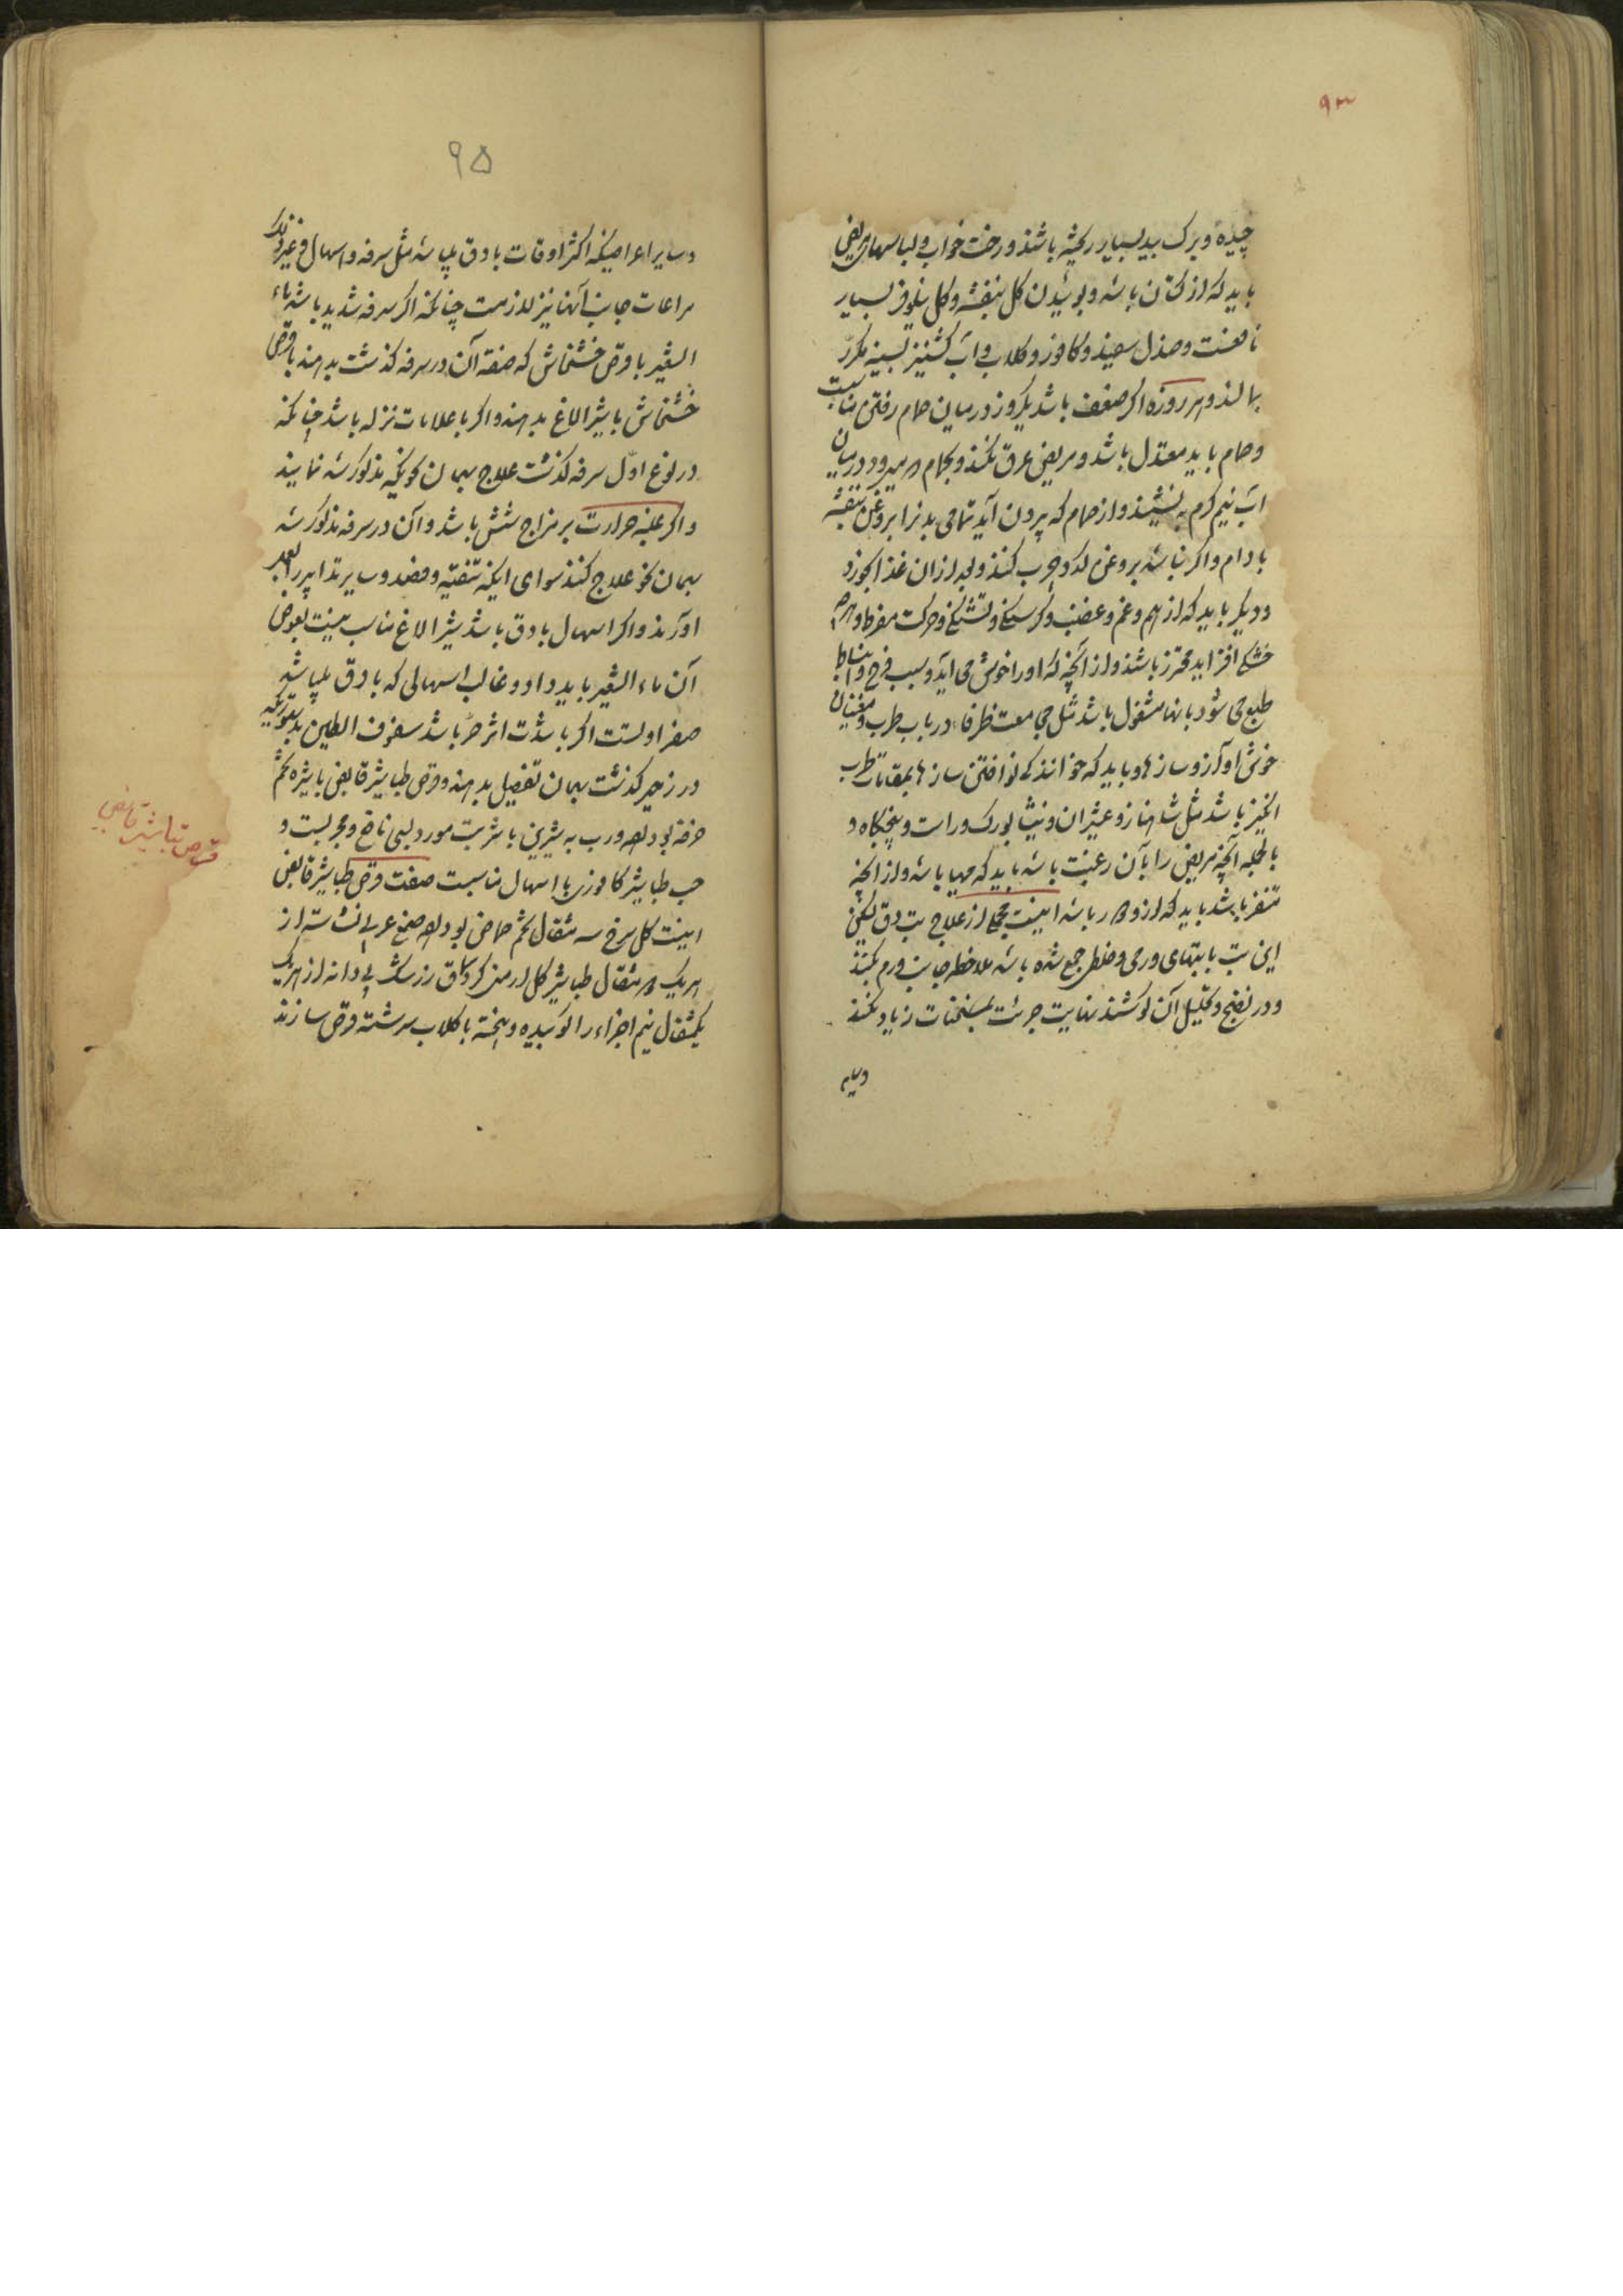 ۹۳
چیده و برک بید بسیار ریخته باشند و رخت خواب و لباسهای مریض
باید که از کتان باشد و بوئیدن کل بنفشه و کل نیلوفر بسیار
نافعست و صندل سفید و کافور و کلاب و آب کشنیز بسینه مکرر
بمالند و هر روزه اکر ضعف باشد یکروز درمیان حمام رفتن مناسبت
و حمام باید معتدل باشد و مریض عرق نکند و بحمام در میرود درمیان
اب نیم کرم بنشیند و از حمام که بیرون آید تمامی بدنرا بروغن بنفشه
بادام و اکر نباشد بروغن کدو چرب کنند و بعد از ان غذا بخورد
و دیکر باید که از هم و غم و غضب و کرسنکی و تشنکی و حرکت مفرط و هر چه
خشکی افزاید محترز باشند و از آنچه که او را خوش می آید و سبب فرح و انبساط
طبع می شود بانها مشغول باشد مثل مجامعت ظرفا در باب طرب و مغنیان
خوش آواز و سازها و باید که خوانندکی و نواختن سازها بمقامات طرب
انکیز باشد مثل شهناز و عشیران و نیشابورک و راست و پنجکاه و
بالجمله آنچه مریض را بآن رغبت باشد باید که مهیا باشد و از آنچه
متنفر باشد باید که از و دور باشد اینست مجملی از علاج تب دق لیکن
این تب با تبهای ورمی و خلطی جمع شده باشد ملاحظه جانب ورم بکنند
و در نضج و تحلیل آن کوشند نهایت جرئت بمسخنات زیاد نکنند
وسایر
۹۵
وسایر اعراضیکه اکثر اوقات با دق میباشد مثل سرفه و اسهال و غیر ذلک
مراعات جانب آنها نیز لازمست چنانکه اکر سرفه شدید باشد ماء
الشعیر با قرص خشخاش که صفة آن در سرفه کذشت بدهند یا قرص
خشخاش با شیر الاغ بدهند و اکر با علامات نزله باشد چنانکه
در نوع اول سرفه کذشت علاج بهمان نحویکه مذکور شد نمایند
و اکر غلبه حرارت بر مزاج شش باشد و آن در سرفه مذکور شد
بهمان نحو علاج کنند سوای اینکه تنقیه و فصد و سایر تدابیر را بعد
اورند و اکر اسهال با دق باشد شیر الاغ مناسب نیست بعوض
آن ماء الشعیر باید داد و غالب اسهالی که با دق میباشد
صفراویست اکر با شدت اثر حر باشد سفوف الطین بدستوریکه
در زحیر کذشت بهمان تفصیل بدهند و قرص طباشیر قابض با شیره تخم
خرفه بوداده و رب به شیرین با شربت مورد بسی نافع و مجربست و
حب طباشیر کافوری با اسهال مناسبت صفت قرص طباشیر قابض
اینست کل سرخ سه مثقال تخم حماض بوداده صمغ عربی نشاسته از
هر یک دو مثقال طباشیر کل ارمنی کرد سماق زرشک بی دانه از هر یک
یکمثقال نیم اجزاء را کوبیده و بیخته با کلاب سرشته قرص سازند
قرص تباشیر قابض